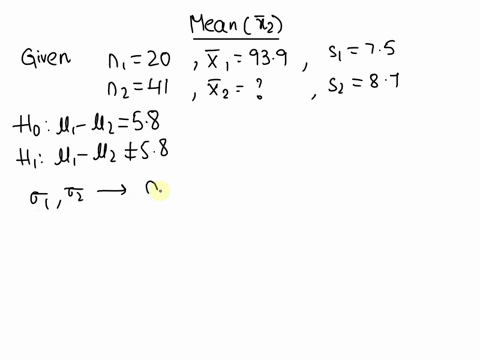 Mean(x̄₂)
Given n₁=20 , x̄₁=93.9 , s₁=7.5
n₂=41 , x̄₂=? , s₂=8.7
H₀: μ₁-μ₂=5.8
H₁: μ₁-μ₂≠5.8
σ₁, σ₂ → n